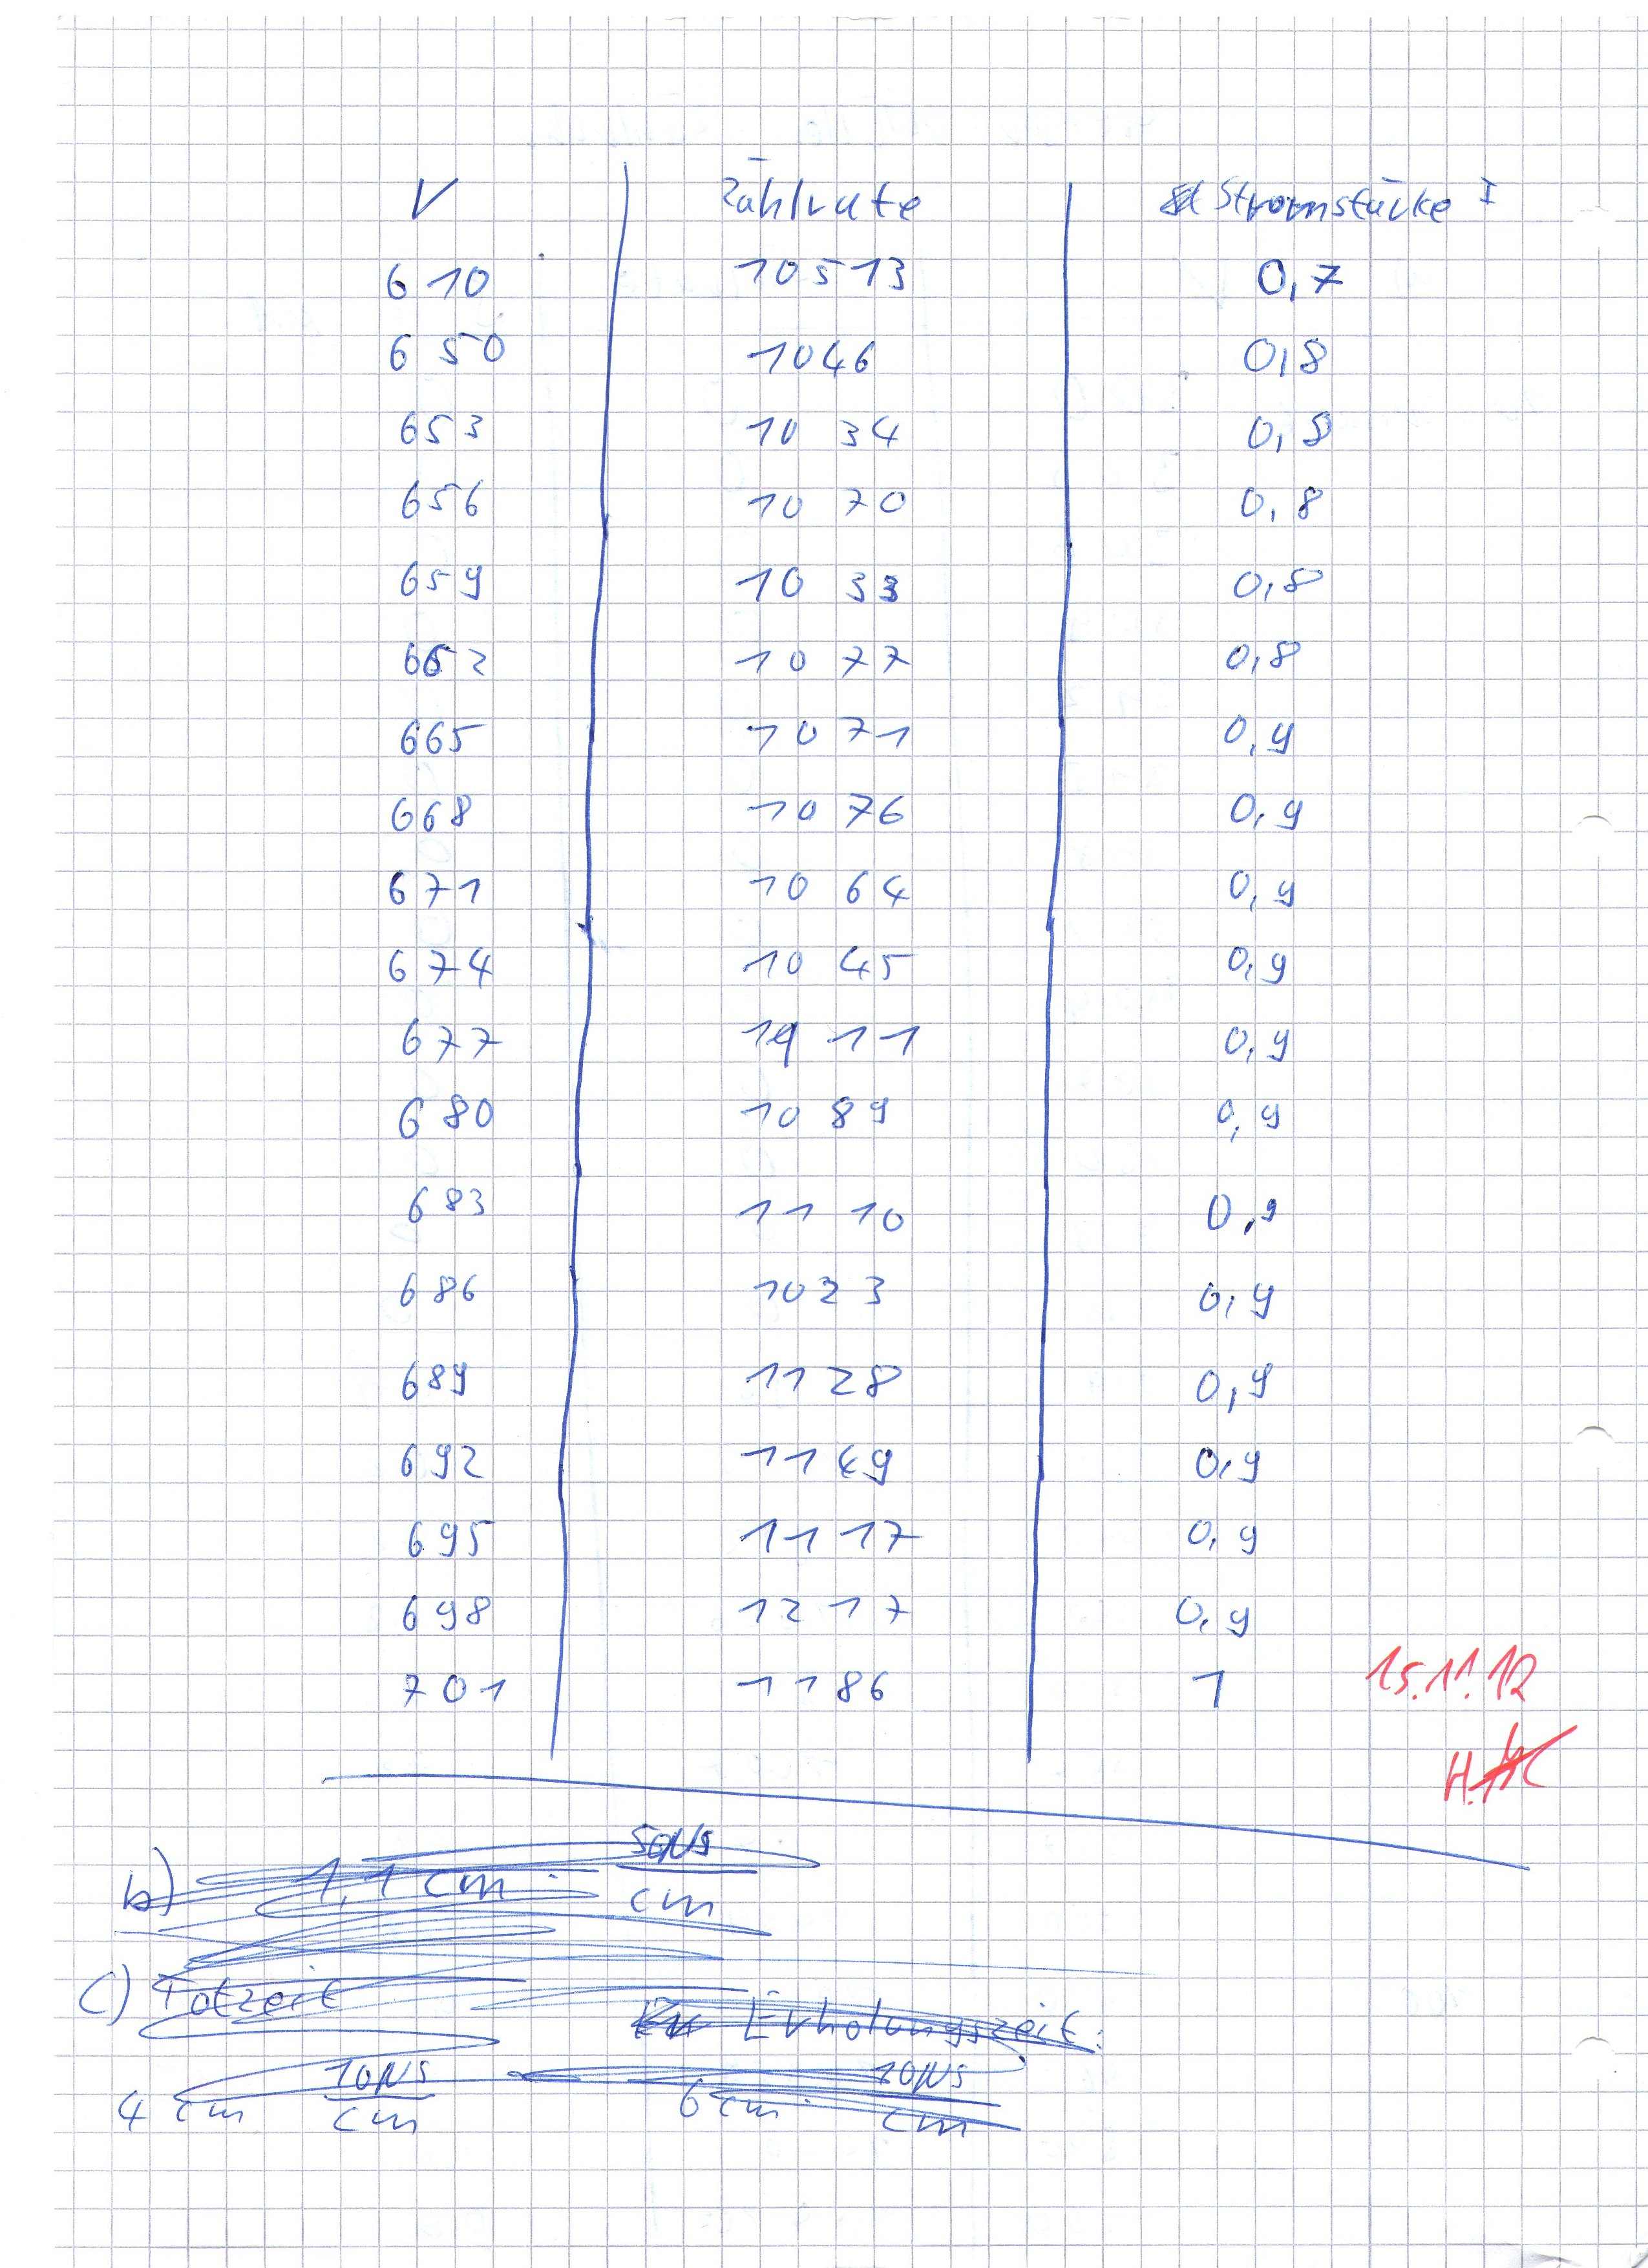 V Zählrate Stromstärke I
610 10513 0,7
650 1046 0,8
653 1034 0,8
656 1070 0,8
659 1033 0,8
662 1077 0,8
665 1071 0,9
668 1076 0,9
671 1064 0,9
674 1045 0,9
677 1111 0,9
680 1089 0,9
683 1110 0,9
686 1023 0,9
689 1128 0,9
692 1149 0,9
695 1117 0,9
698 1217 0,9
701 1186 1
15.11.12
b) 1,1 cm · 50µs/cm
c) Totzeit Erholungszeit:
4 cm 10µs/cm 6 cm · 10µs/cm